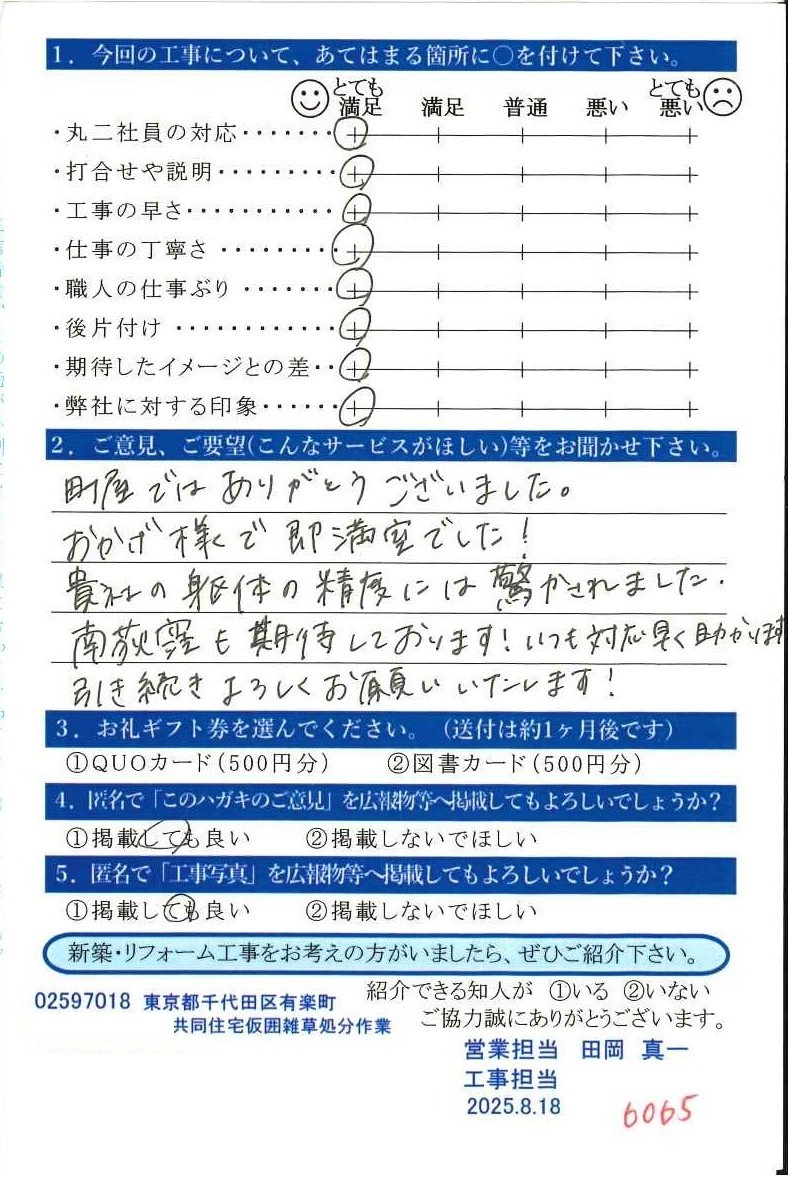 1．今回の工事について、あてはまる箇所に○を付けて下さい。
とても満足 満足 普通 悪い とても悪い
・丸二社員の対応・・・・・・・
・打合せや説明・・・・・・・・・
・工事の早さ・・・・・・・・・・・
・仕事の丁寧さ ・・・・・・・・
・職人の仕事ぶり ・・・・・・
・後片付け ・・・・・・・・・・・
・期待したイメージとの差・・
・弊社に対する印象・・・・・・
2．ご意見、ご要望(こんなサービスがほしい)等をお聞かせ下さい。
町屋ではありがとうございました。
おかげ様で即満室でした！
貴社の躯体の精度には驚かされました.
南荻窪も期待しております！いつも対応早く助かります
引き続きよろしくお願いいたします！
3．お礼ギフト券を選んでください。（送付は約1ヶ月後です）
①QUOカード(500円分） ②図書カード(500円分）
4．匿名で「このハガキのご意見」を広報物等へ掲載してもよろしいでしょうか？
①掲載しても良い ②掲載しないでほしい
5．匿名で「工事写真」を広報物等へ掲載してもよろしいでしょうか？
①掲載しても良い ②掲載しないでほしい
新築・リフォーム工事をお考えの方がいましたら、ぜひご紹介下さい。
紹介できる知人が ①いる ②いない
02597018 東京都千代田区有楽町
共同住宅仮囲雑草処分作業
ご協力誠にありがとうございます。
営業担当 田岡 真一
工事担当
2025.8.18
6065